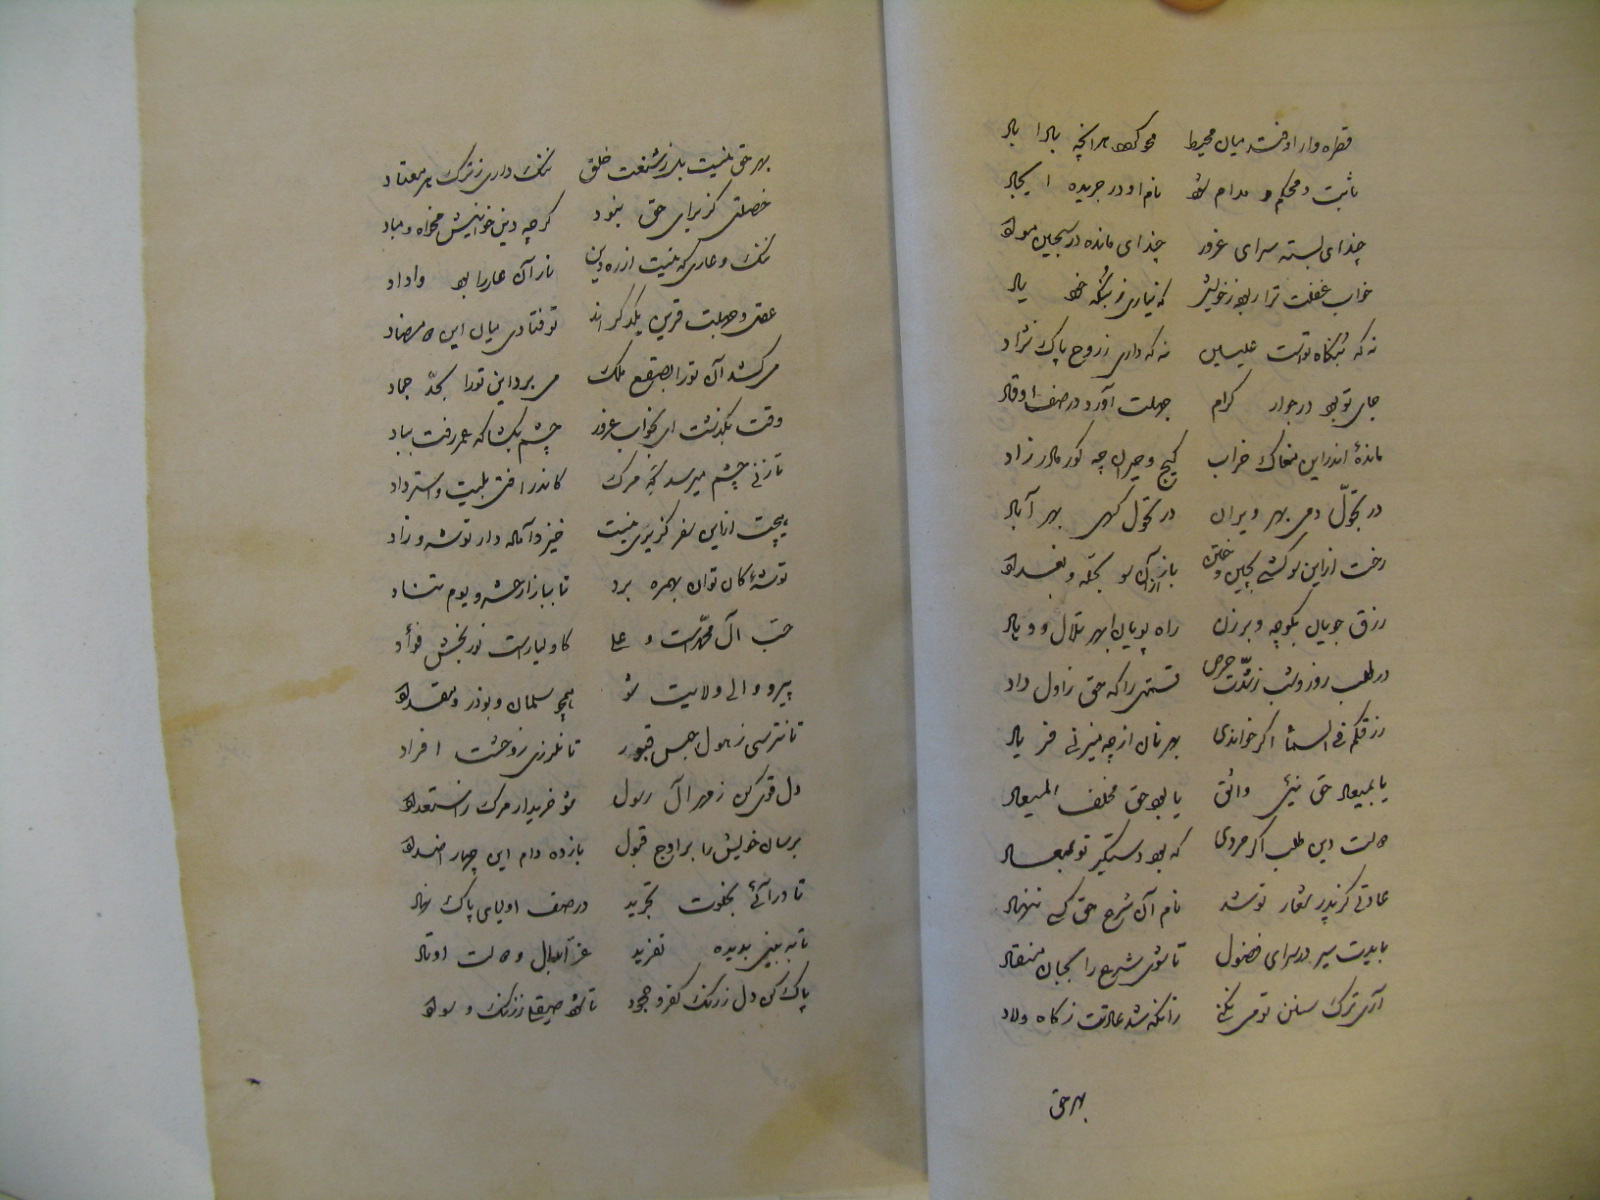 قطره وار اوفتد میان محیط محو گردد هر آنچه بادا باد
ثابت و محکم و مدام شود نام او در جریده ایجاد
چند ای بسته سرای غرور چند ای مانده در سجین
خواب غفلت ترا ربود ز خویش که نیاری ز بنگه خود یاد
نه که بنگاه تو است علیین نه که داری ز روح پاک نژاد
جای تو بود در جوار کرام جهلت آورد در صف اوغاد
ماندهٔ اندر این مغاک خراب گیج و حیران چه کور مادر زاد
در تجوّل دمی بهر ویران در تحول گهی بهر آباد
رخت از این سو کشی بچین و ختن باز از آن سو بحله و بغداد
رزق جویان بکوچه و برزن راه پویان بهر تلال و وهاد
در طلب روز و شب ز شدّت حرص قسمتی را که حق ز اول داد
رزقکم فی السما اگر خواندی بهر نان از چه میزنی فریاد
یا بمیعاد حق نیی واثق یا بود حق مخلف المیعاد
هست دین طلب اگر مردی که بود دستگیر تو بمعاد
عادتی کز پدر شعار تو شد نام آن شرع حق کسی ننهاد
بایدت سیر در سرای فضول تا شوی شرع را بجان منقاد
آری ترک سنن تو می نکنی زانکه شد عادتت ز گاه ولاد
بهر حق
بهر حق نیست بل ز شنعت خلق ننگ داری ز ترک هر معتاد
خصلتی کز برای حق نبود گرچه دین خوانیش مخواه و مباد
ننگ و عاری که نیست از ره دین نار از آن عار را بود وا داد
عقل و جهلت قرین یکدگر اند تو فتادی میان این
می کشد آن تو را بصقع ملک می برد این تو را بحدّ جماد
وقت بگذشت ای بخواب غرور چشم بگشا که عمر رفت بباد
تا زنی چشم میرسد گه مرگ کاندر افتی بلیت و استرداد
هیچت از این سفر گزیری نیست خیز و آماده دار توشه و زاد
توشهٔ کان توان بهمره برد تا ببازار حشر و یوم تناد
حبّ آل محمّد است و علی کاولیا راست نور بخش فؤاد
پیرو والی ولایت شو همچو سلمان و بوذر و مقداد
تا نترسی ز هول حبس قبور تا نلرزی ز وحشت افراد
دل قوی کن ز مهر آل رسول شو خریدار مرگ ز استعداد
برسان خویش را بر اوج قبول باز ده دام این چهار اضداد
تا در آئی بخلوت تجرید در صف اولیای پاک نهاد
تا به بینی بدیده تفرید عز ابدال و اوتاد
پاک کن دل ز زنگ کفر و جحود تا شود صیقل ز زنگ و سواد